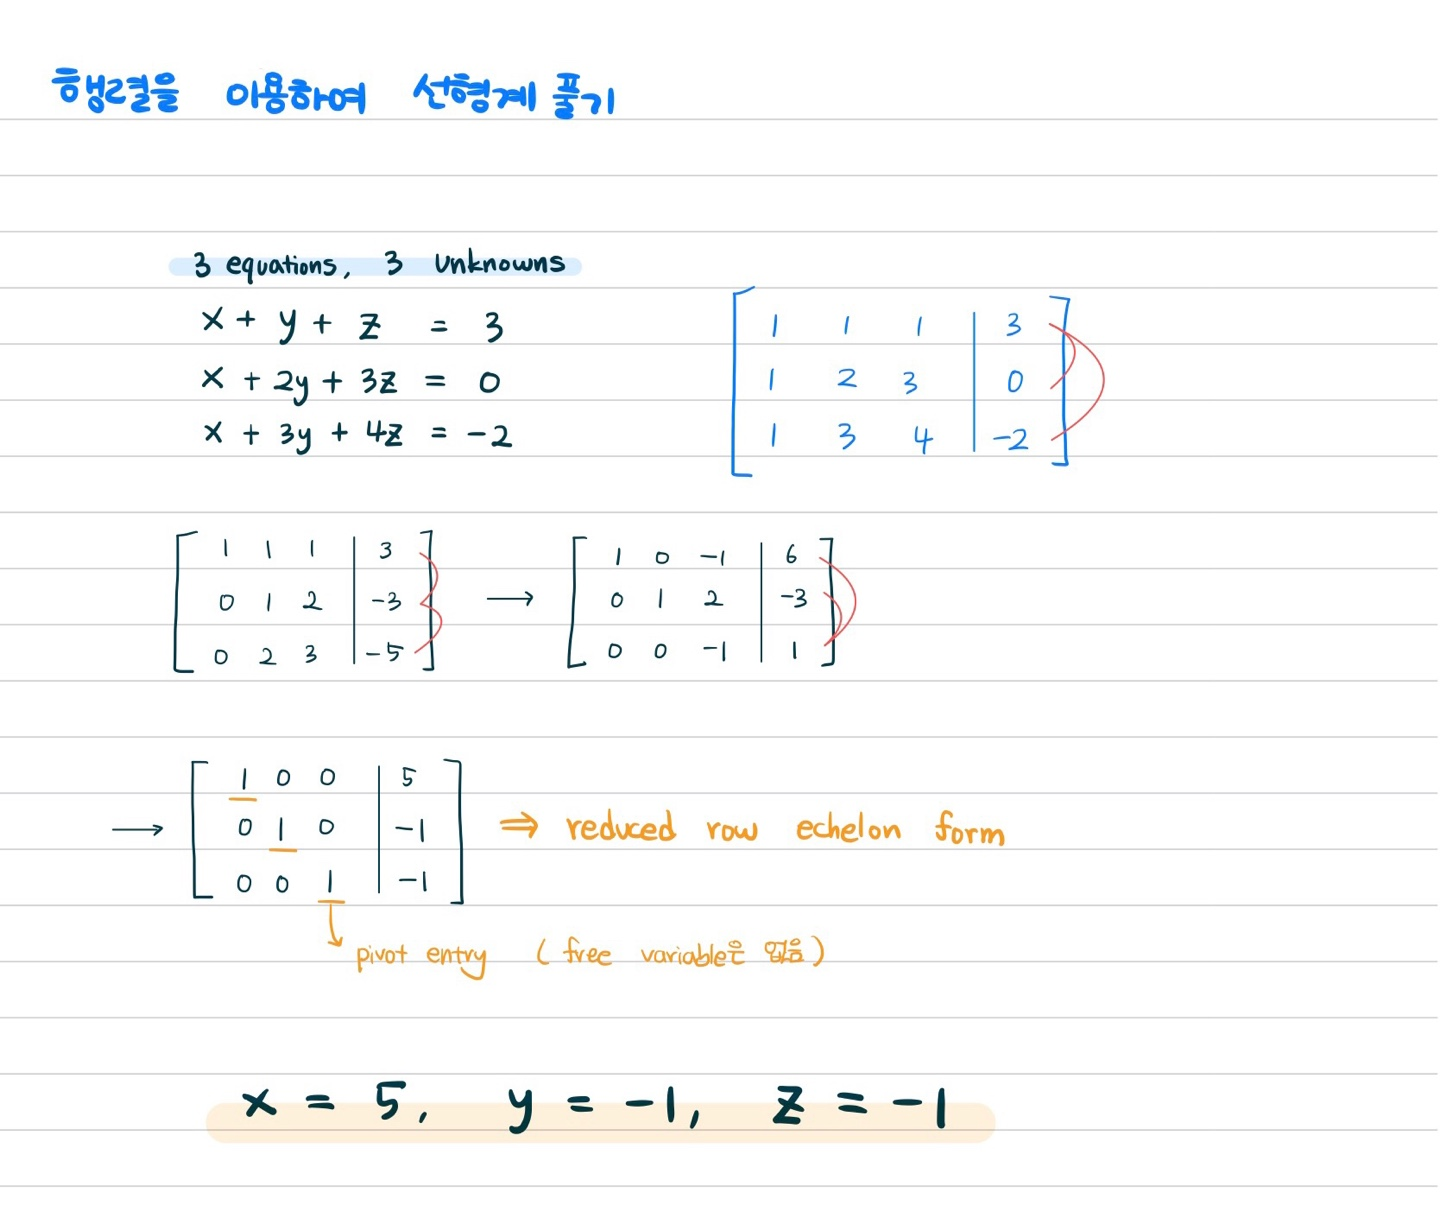 행렬을 이용하여 선형계 풀기
3 equations, 3 unknowns
x + y + z = 3
x + 2y + 3z = 0
x + 3y + 4z = -2
1 1 1 | 3
1 2 3 | 0
1 3 4 | -2
1 1 1 | 3
0 1 2 | -3
0 2 3 | -5
→
1 0 -1 | 6
0 1 2 | -3
0 0 -1 | 1
→
1 0 0 | 5
0 1 0 | -1
0 0 1 | -1
⇒ reduced row echelon form
pivot entry (free variable은 없음)
x = 5, y = -1, z = -1